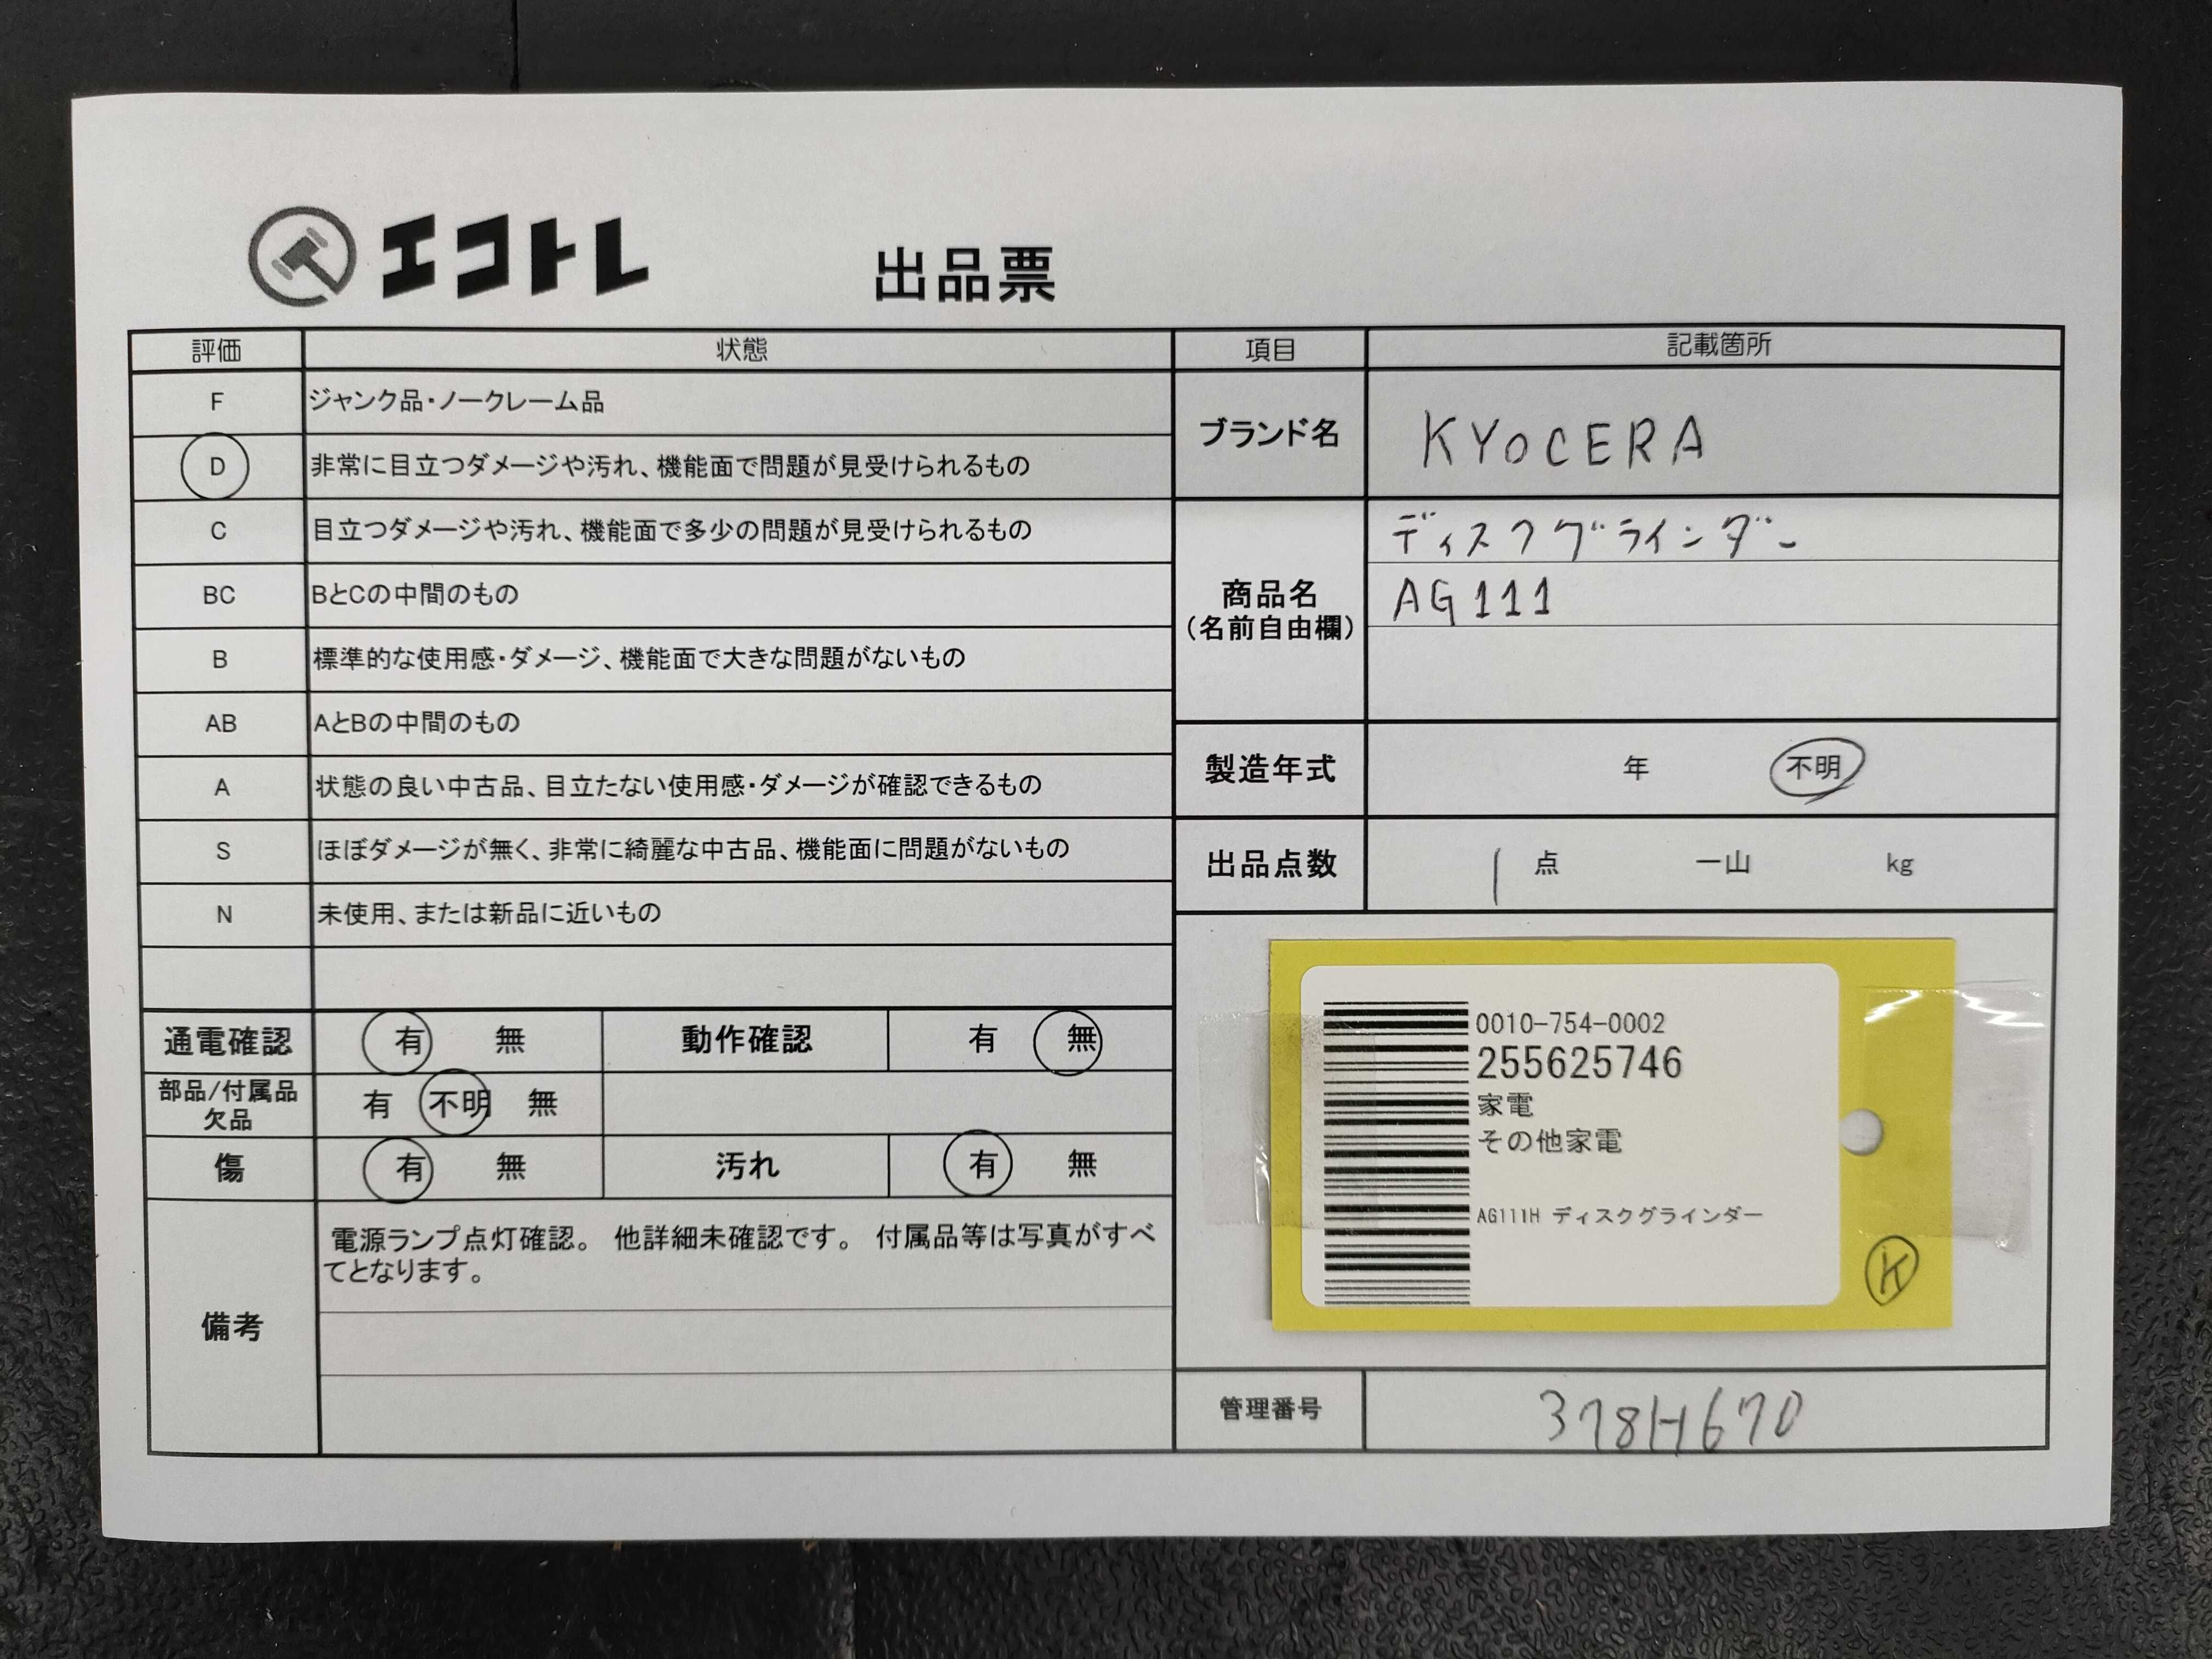 エコトレ 出品票
評価 状態
F ジャンク品・ノークレーム品
D 非常に目立つダメージや汚れ、機能面で問題が見受けられるもの
C 目立つダメージや汚れ、機能面で多少の問題が見受けられるもの
BC BとCの中間のもの
B 標準的な使用感・ダメージ、機能面で大きな問題がないもの
AB AとBの中間のもの
A 状態の良い中古品、目立たない使用感・ダメージが確認できるもの
S ほぼダメージが無く、非常に綺麗な中古品、機能面に問題がないもの
N 未使用、または新品に近いもの
通電確認 有 無 動作確認 有 無
部品/付属品
欠品 有 不明 無
傷 有 無 汚れ 有 無
備考
電源ランプ点灯確認。 他詳細未確認です。 付属品等は写真がすべ
てとなります。
項目 記載箇所
ブランド名 KYOCERA
商品名
(名前自由欄)
ディスクグラインダー
AG111
製造年式 年 不明
出品点数 1 点 一山 kg
0010-754-0002
255625746
家電
その他家電
AG111H ディスクグラインダー
K
管理番号 378H670